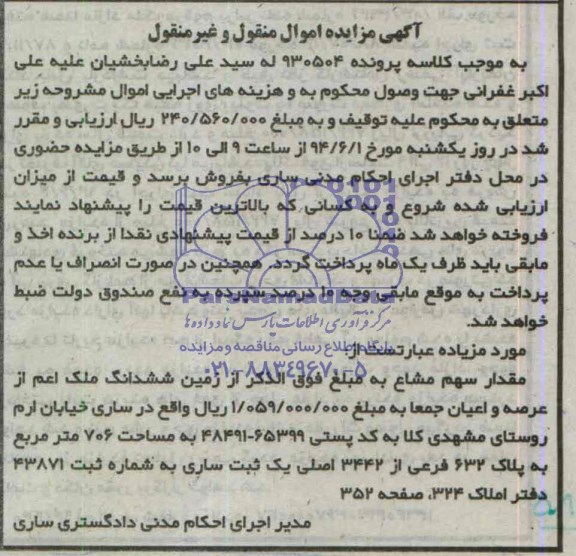 آگهی مزایده اموال منقول و غیرمنقول
به موجب کلاسه پرونده ۹۳۰۵۰۴ له سید علی رضابخشیان علیه علی
اکبر غفرانی جهت وصول محکوم به و هزینه های اجرایی اموال مشروحه زیر
متعلق به محکوم علیه توقیف و به مبلغ ۲۴۰/۵۶۰/۰۰۰ ریال ارزیابی و مقرر
شد در روز یکشنبه مورخ ۹۴/۶/۱ از ساعت ۹ الی ۱۰ از طریق مزایده حضوری
در محل دفتر اجرای احکام مدنی ساری بفروش برسد و قیمت از میزان
ارزیابی شده شروع و به کسانی که بالاترین قیمت را پیشنهاد نمایند
فروخته خواهد شد ضمنا ۱۰ درصد از قیمت پیشنهادی نقدا از برنده اخذ و
مابقی باید ظرف یک ماه پرداخت گردد. همچنین در صورت انصراف یا عدم
پرداخت به موقع مابقی وجه ۱۰ درصد سپرده به نفع صندوق دولت ضبط
خواهد شد.
ParsNamadData
مرکز فرآوری اطلاعات پارس نماد داده ها
پایگاه اطلاع رسانی مناقصه و مزایده
۰۲۱-۸۸۳۴۹۶۷۰-۵
مورد مزیاده عبارتست از:
مقدار سهم مشاع به مبلغ فوق الذکر از زمین ششدانگ ملک اعم از
عرصه و اعیان جمعا به مبلغ ۱/۰۵۹/۰۰۰/۰۰۰ ریال واقع در ساری خیابان ارم
روستای مشهدی کلا به کد پستی ۶۵۳۹۹-۴۸۴۹۱ به مساحت ۷۰۶ متر مربع
به پلاک ۶۳۲ فرعی از ۳۴۴۲ اصلی یک ثبت ساری به شماره ثبت ۴۳۸۷۱
دفتر املاک ۳۲۴، صفحه ۳۵۲
مدیر اجرای احکام مدنی دادگستری ساری